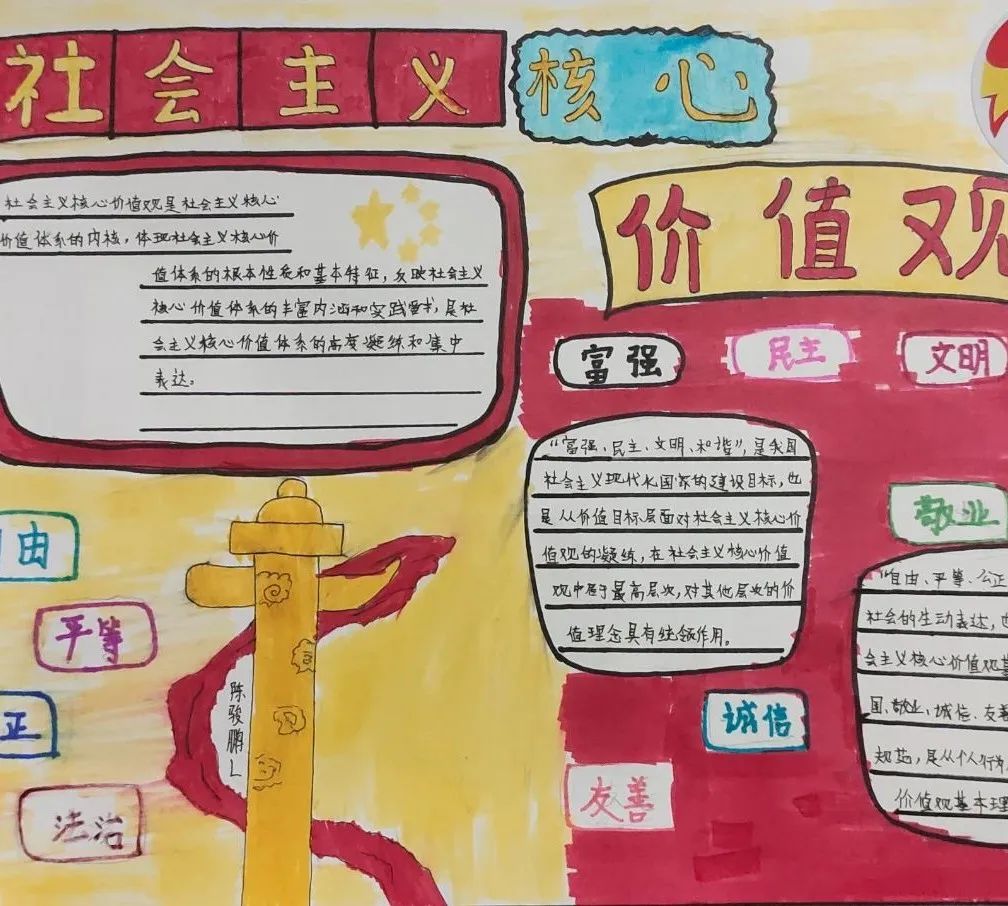 社会主义核心
价值观
社会主义核心价值观是社会主义核心
价值体系的内核，体现社会主义核心价
值体系的根本性质和基本特征，反映社会主义
核心价值体系的丰富内涵和实践要求，是社
会主义核心价值体系的高度凝练和集中
表达。
富强
民主
文明
“富强、民主、文明、和谐”，是我国
社会主义现代化国家的建设目标，也
是从价值目标层面对社会主义核心价
值观的凝练，在社会主义核心价值
观中居于最高层次，对其他层次的价
值理念具有统领作用。
敬业
“自由、平等、公正
社会的生动表达，也
会主义核心价值观基
国、敬业、诚信、友善
规范，是从个人行为
价值观基本理
由
平等
正
法治
陈骏鹏
诚信
友善